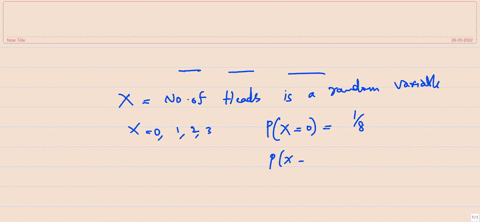 Note Title
26-05-2022
X = No. of Heads is a random variable
X = 0, 1, 2, 3 P(X = 0) = 1/8
P(X -
1/1